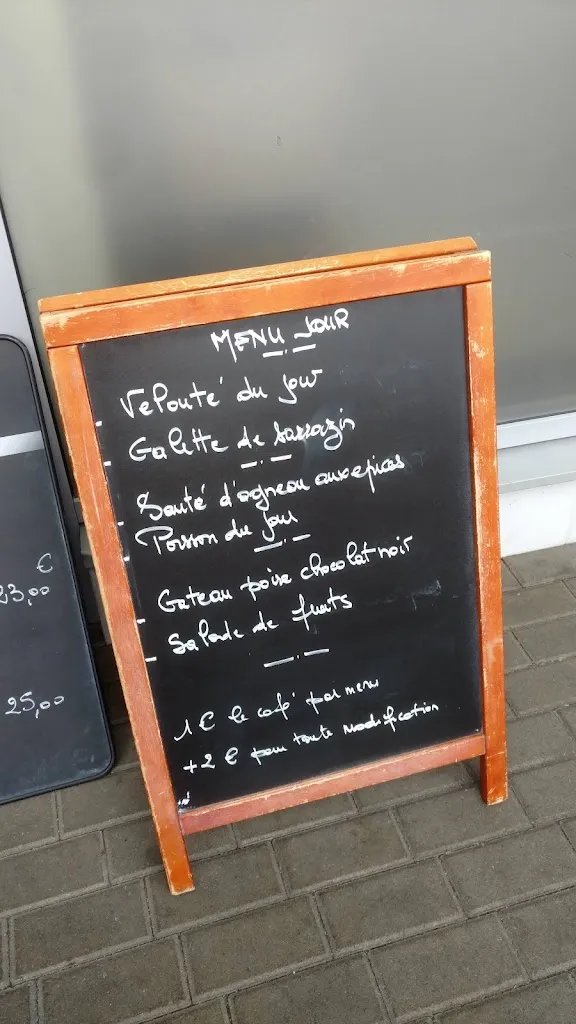 MENU JOUR
- Velouté du jour
- Galette de Sarrazin
- Sauté d'agneau aux epices
- Poisson du jour
- Gateau poire chocolat noir
- Salade de fruits
1 € le café par menu
+2 € pour toute modification
€
23,00
25,00